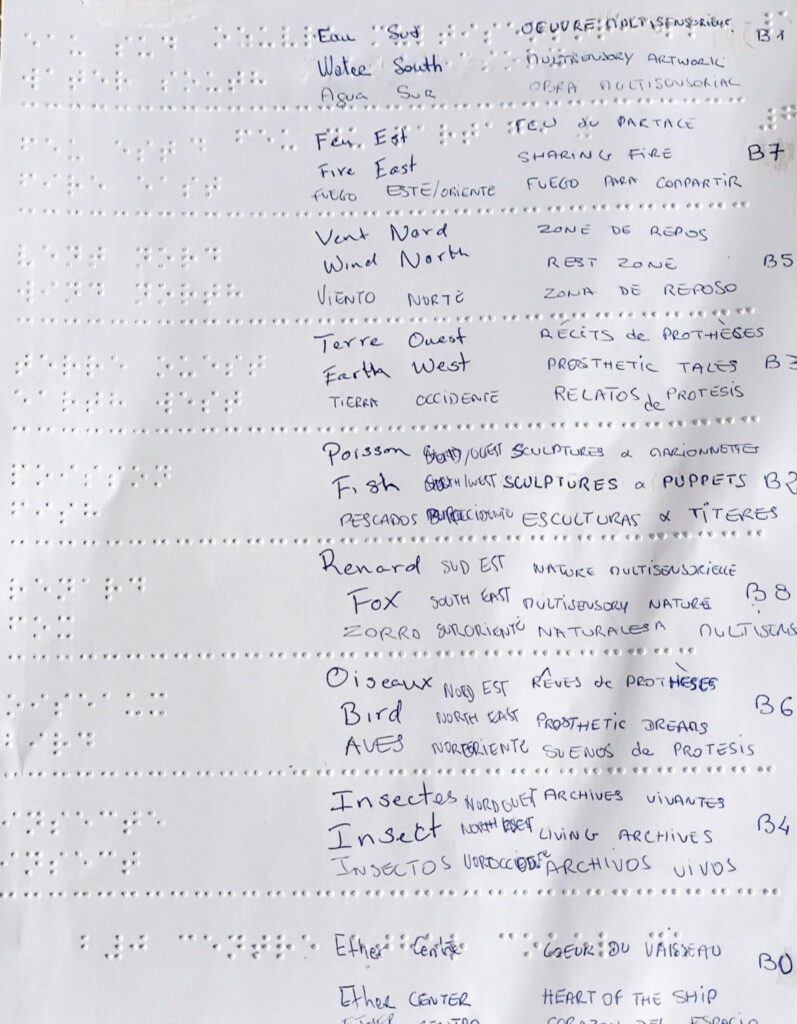 Eau Sud OEUVRE MULTISENSORIELLE B1
Water South MULTISENSORY ARTWORK
Agua Sur OBRA MULTISENSORIAL
Feu Est FEU DU PARTAGE
Fire East SHARING FIRE B7
FUEGO ESTE/ORIENTE FUEGO PARA COMPARTIR
Vent Nord ZONE DE REPOS
Wind North REST ZONE B5
VIENTO NORTE ZONA DE REPOSO
Terre Ouest RÉCITS de PROTHÈSES
Earth West PROSTHETIC TALES B3
TIERRA OCCIDENTE RELATOS de PROTESIS
Poisson /OUEST SCULPTURES & MARIONNETTES
Fish /WEST SCULPTURES & PUPPETS B2
PESCADOS ESCULTURAS & TÍTERES
Renard SUD EST NATURE MULTISENSORIELLE
Fox SOUTH EAST MULTISENSORY NATURE B8
ZORRO SURORIENTE NATURALESA MULTISENS
Oiseaux NORD EST RÊVES de PROTHÈSES
Bird NORTH EAST PROSTHETIC DREAMS B6
AVES NORTERIENTE SUENOS de PROTESIS
Insectes NORD OUEST ARCHIVES VIVANTES
Insect NORTH LIVING ARCHIVES B4
INSECTOS ARCHIVOS VIVOS
Ether Centre COEUR DU VAISSEAU B0
Ether CENTER HEART OF THE SHIP
ETHER CENTRO CORAZON DEL ESPACIO